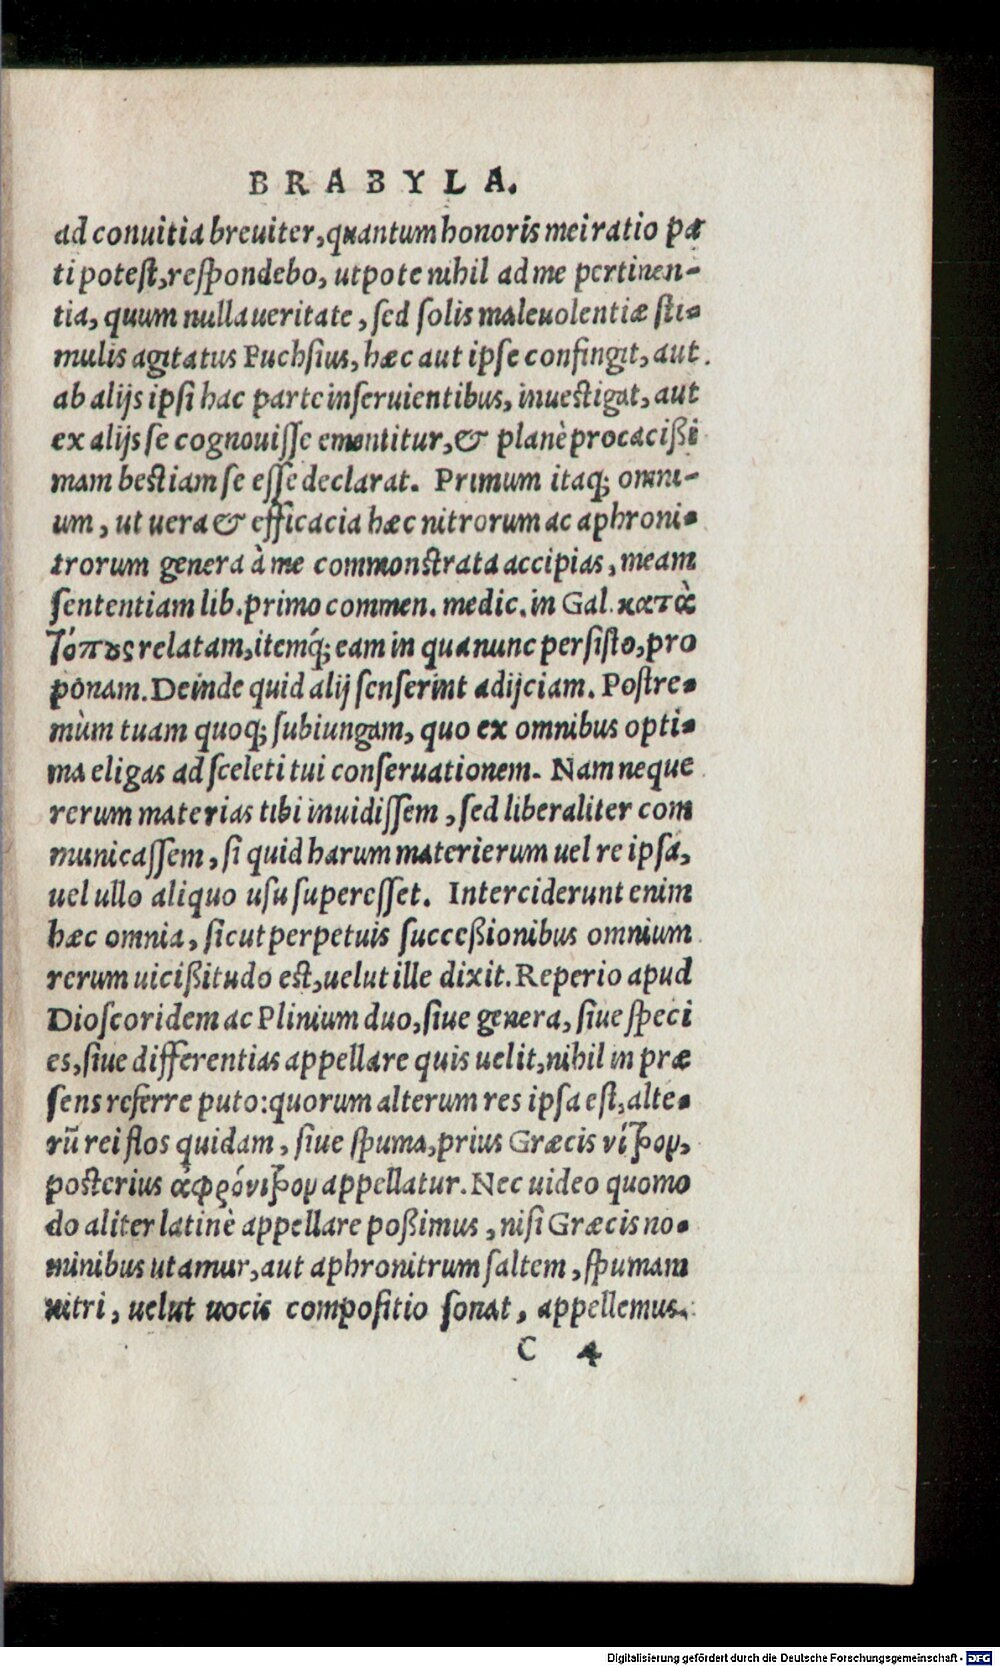 BRABYLA.
ad conuitia breuiter, quantum honoris mei ratio pa
ti potest, respondebo, utpote nihil ad me pertinen-
tia, quum nulla ueritate, sed solis maleuolentiæ sti-
mulis agitatus Fuchsius, hæc aut ipse confingit, aut
ab alijs ipsi hac parte inseruientibus, inuestigat, aut
ex alijs se cognouisse ementitur, & planè procacißi
mam bestiam se esse declarat. Primum itaq; omni-
um, ut uera & efficacia hæc nitrorum ac aphroni-
trorum genera à me commonstrata accipias, meam
sententiam lib. primo commen. medic. in Gal. κατὰ
τόπους relatam, itemq́; eam in qua nunc persisto, pro
ponam. Deinde quid alij senserint adijciam. Postre-
mùm tuam quoq; subiungam, quo ex omnibus opti-
ma eligas ad sceleti tui conseruationem. Nam neque
rerum materias tibi inuidissem, sed liberaliter com
municassem, si quid harum materierum uel re ipsa,
uel ullo aliquo usu superesset. Interciderunt enim
hæc omnia, sicut perpetuis succeßionibus omnium
rerum uicißitudo est, uelut ille dixit. Reperio apud
Dioscoridem ac Plinium duo, siue genera, siue speci
es, siue differentias appellare quis uelit, nihil in præ
sens referre puto: quorum alterum res ipsa est, alte-
rũ rei flos quidam, siue spuma, prius Græcis νίτρον,
posterius ἀφρόνιτρον appellatur. Nec uideo quomo
do aliter latinè appellare poßimus, nisi Græcis no-
minibus utamur, aut aphronitrum saltem, spumam
nitri, uelut uocis compositio sonat, appellemus.
C 4
Digitalisierung gefördert durch die Deutsche Forschungsgemeinschaft - DFG